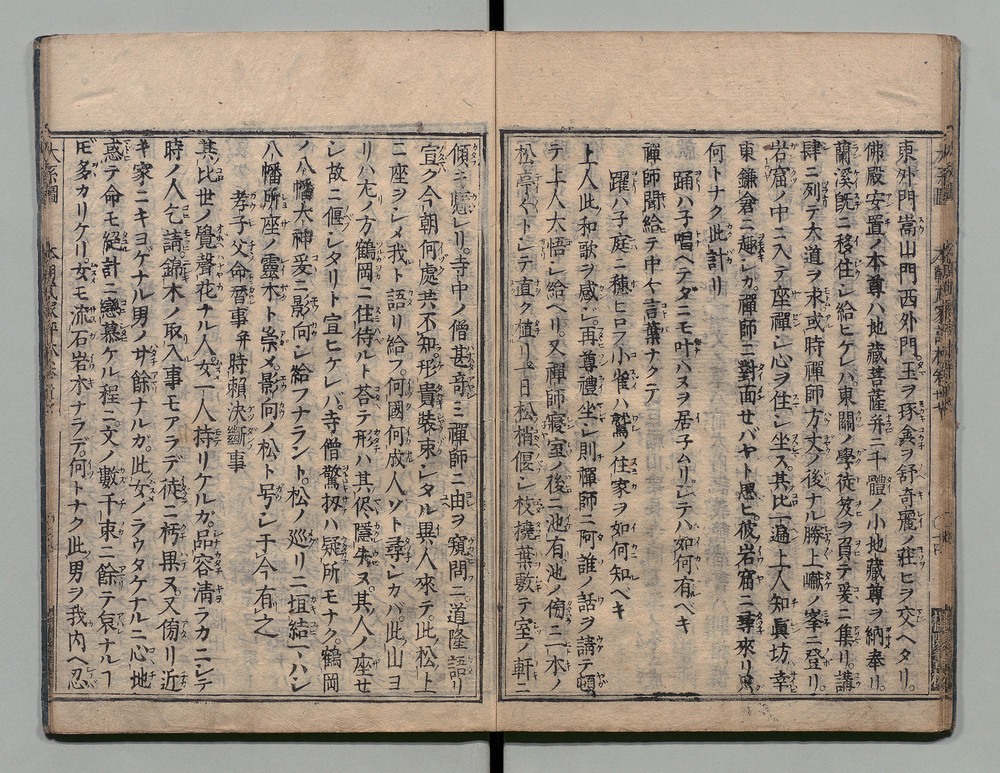 東外門嵩山門西外門。玉ヲ琢金ヲ舒奇麗ノ荘ヒヲ交ヘタリ。
佛殿安置ノ本尊ハ地藏菩薩并ニ千體ノ小地藏尊ヲ納奉リ。
蘭溪既ニ移住シ給ヒケレバ。東關ノ學徒笈ヲ負テ爰ニ集リ。講
肆ニ列テ大道ヲ求。或時禪師方丈ノ後ナル勝上巘ノ峯ニ登リ。
岩窟ノ中ニ入テ座禪シ心ヲ住シ坐ス。其比一遍上人知眞坊。幸
東鎌倉ニ趣レカ。禪師ニ對面せバヤト思ヒ。彼岩窟ニ尋來リ思
何トナク此計リ
踊ハ子唱ヘテダニモ叶ハヌヲ居子ムリシテハ如何有ベキ
禪師聞給テ申ヤル言葉ナクテ
躍ハ子庭ニ穂ヒロフ小雀ハ鷲ノ住家ヲ如何知ベキ
上人此和歌ヲ感シ。再尊禮坐シ則禪師ニ阿誰ノ話ヲ請テ頓
テ上人大悟シ給ヘリ。又禪師寢室ノ後ニ池有。池ノ傍ニ一木ノ
松亭々トシテ直ク植リ。一日松梢偃シ枝撓葉敷テ室ノ軒ニ
傾キ懸レリ。寺中ノ僧甚奇ミ禪師ニ由ヲ窺問ニ。道隆語リ
宣ク今朝何處共不知。邪貴裝束シタル異人來テ。此松上
ニ座ヲシメ我ト語リ給フ。何國何成人ゾト尋シカバ。此山ヨ
リハ左ノ方鶴岡ニ住侍ルト荅テ形ハ其侭隱失ヌ。其人ノ座せ
シ故ニ偃シタリト宣ヒケレバ。寺僧驚扨ハ疑所モナク。鶴岡
ノ八幡大神爰ニ影向シ給フナラント。松ノ廻リニ垣結ハシ
八幡所座ノ靈木ト崇メ。影向ノ松ト写シ于今有之
孝子父命替事并時賴決斷事
其比世ノ覺聲花ナル人。女一人持リケルガ。品容淸ラカニシテ
時ノ人乞請錦木ノ取入事モアラデ徒ニ朽果ヌ。又傍リ近
キ家ニキヨゲナル男ノサ餘ナルガ。此女ノラウタケナルニ心地
惑テ命モ絕計ニ戀慕ケル程ニ。文ノ數千束ニ餘テ哀ナルヿ
𪜈多カリケリ。女モ流石岩木ナラデ。何トナク此男ヲ我内ヘ忍